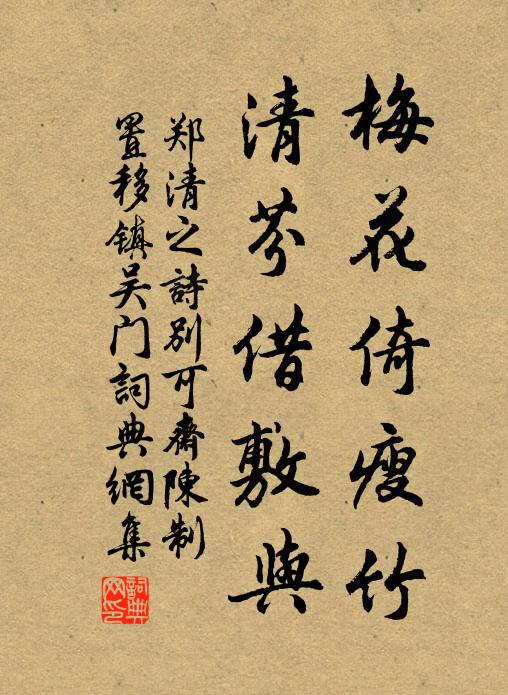 梅花倚瘦竹
清芬借敷與
郑清之詩別可齋陳制
置移鎮吴门詞典網集
詞典网印